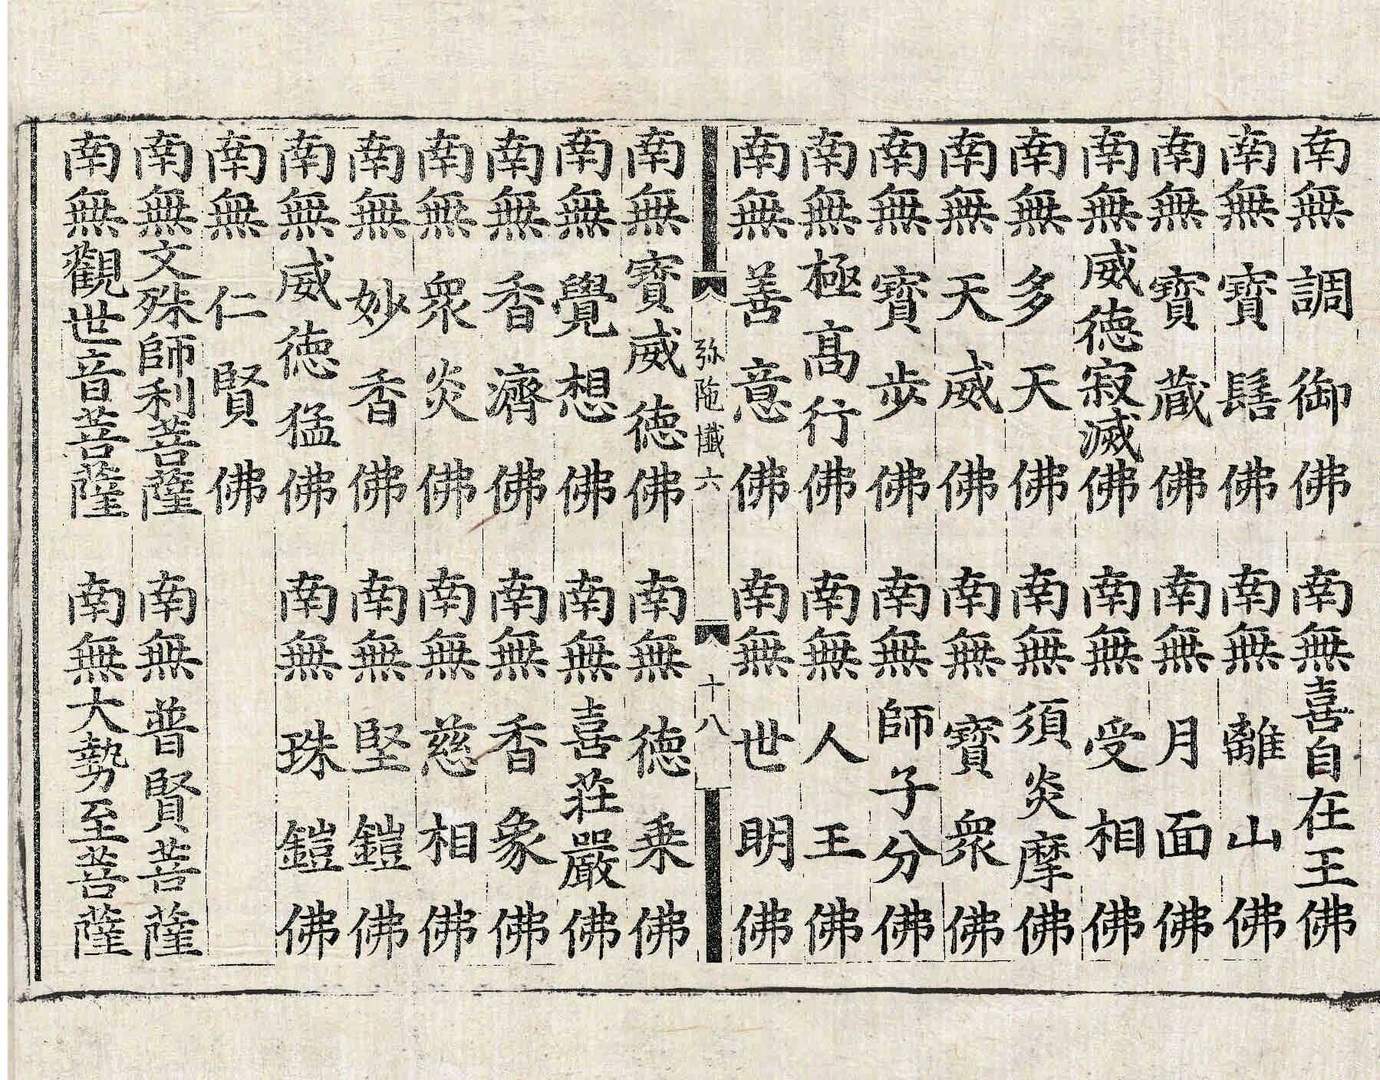 南無調御佛 南無喜自在王佛
南無寶髻佛 南無離山佛
南無寶藏佛 南無月面佛
南無威德寂滅佛 南無受相佛
南無多天佛 南無須炎摩佛
南無天威佛 南無寶衆佛
南無寶步佛 南無師子分佛
南無極高行佛 南無人王佛
南無善意佛 南無世明佛
弥陁懺六 十八
南無寶威德佛 南無德乘佛
南無覺想佛 南無喜莊嚴佛
南無香濟佛 南無香象佛
南無衆炎佛 南無慈相佛
南無妙香佛 南無堅鎧佛
南無威德猛佛 南無珠鎧佛
南無仁賢佛
南無文殊師利菩薩 南無普賢菩薩
南無觀世音菩薩 南無大勢至菩薩